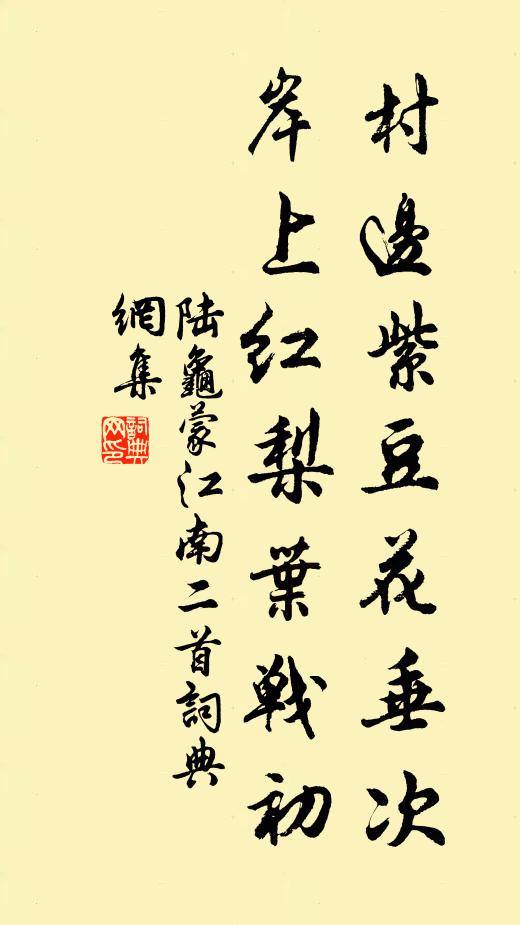 村邊紫豆花垂次
岸上红梨葉戰初
陆龜蒙江南二首詞典
網集
詞典
网印